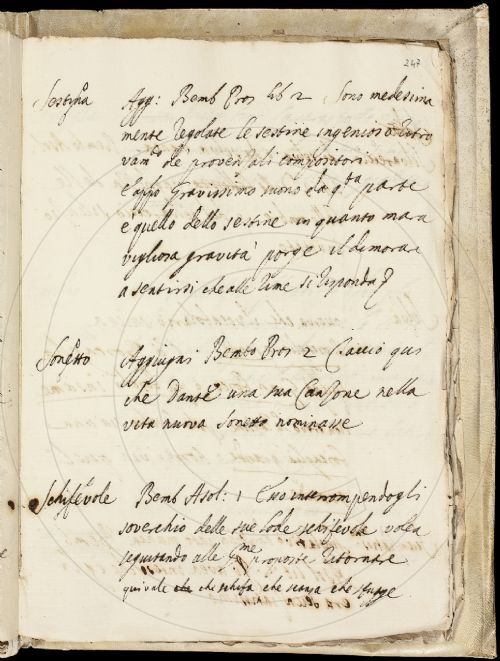 247
Sestina Agg: Bemb Pros lib 2 Sono medesima
mente regolate le sestine ingenioso ritro
vam.to de' provenzali compositori
e appo gravissimo suono da q.ta parte
è quello dello sestine in quanto mara
vigliosa gravità porge il dimorare
a sentirsi che alle rime si risponda
Sonetto Aggiungasi Bembo Pros 2
che Dante una sua Canzone nella
vita nuova Sonetto nominasse
Schifévole Bemb Asol: 1 interrompendogli
soverchio delle sue lode schifévole volea
seguitando alle proposte ritornare
quivale che schifa che scansa che sfugge.